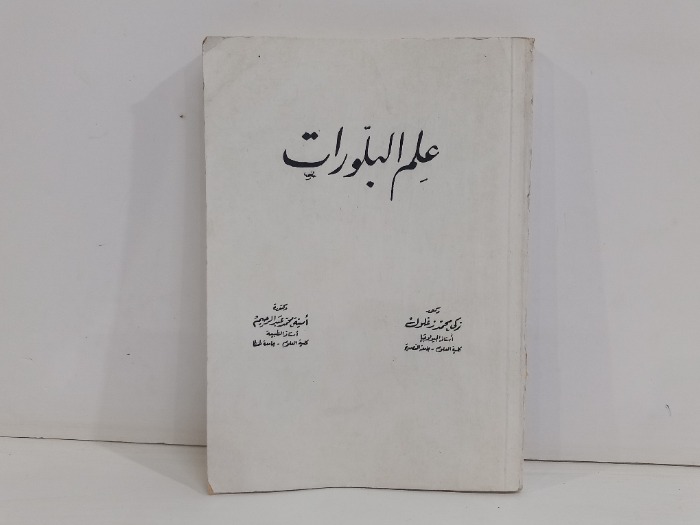 علم البلّورات
دكتور
زكى محمد زغلول
أستاذ الجيولوجيا
كلية العلوم - جامعة المنصورة
دكتورة
أمينة محمد عبد الرحيم
أستاذ الطبيعة
كلية العلوم - جامعة طنطا